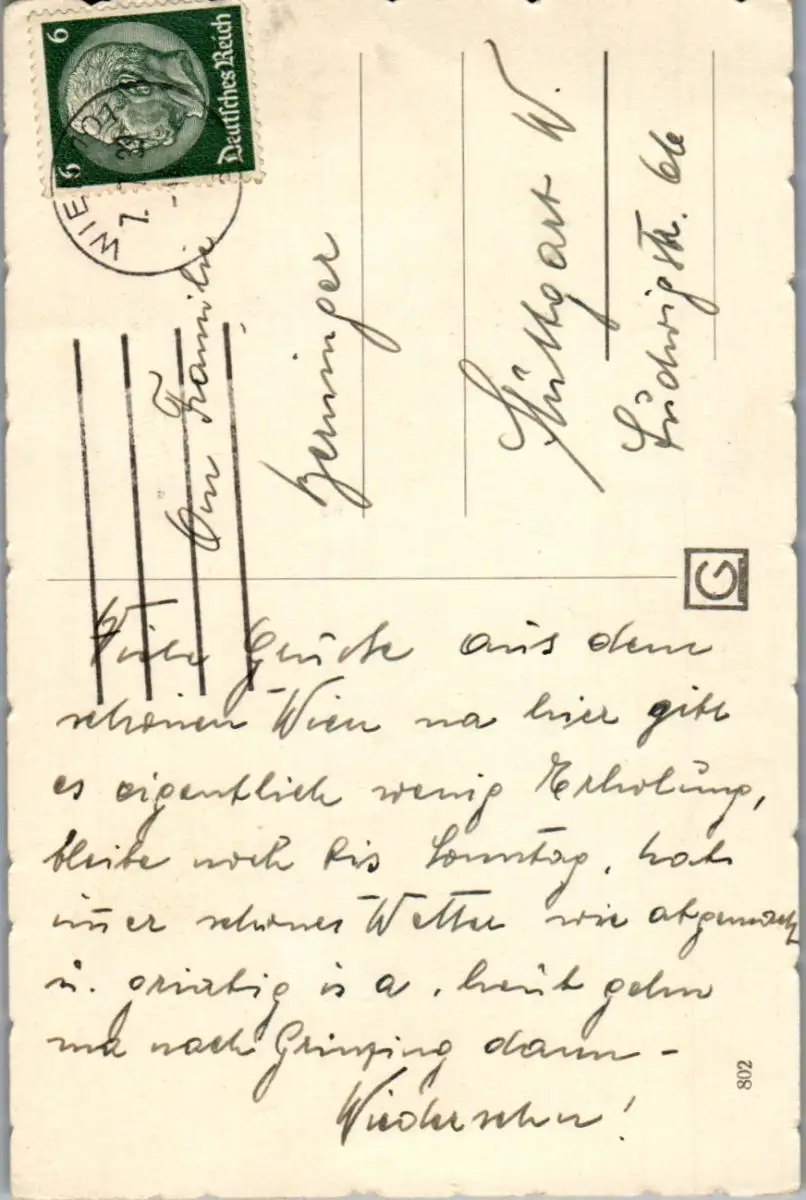 6 Deutsches Reich 6
WIE
7.
39
An Familie
Berninger
Stuttgart W.
Ludwigstr. 66
G
Viele Grüße aus dem
schönen Wien na hier gibt
es eigentlich wenig Erholung,
bleibe noch bis Sonntag, hab
im̄er schönes Wetter wie abgemacht
u. griabig is a, heut gehn
ma nach Grinzing dann –
Wiedersehn!
802